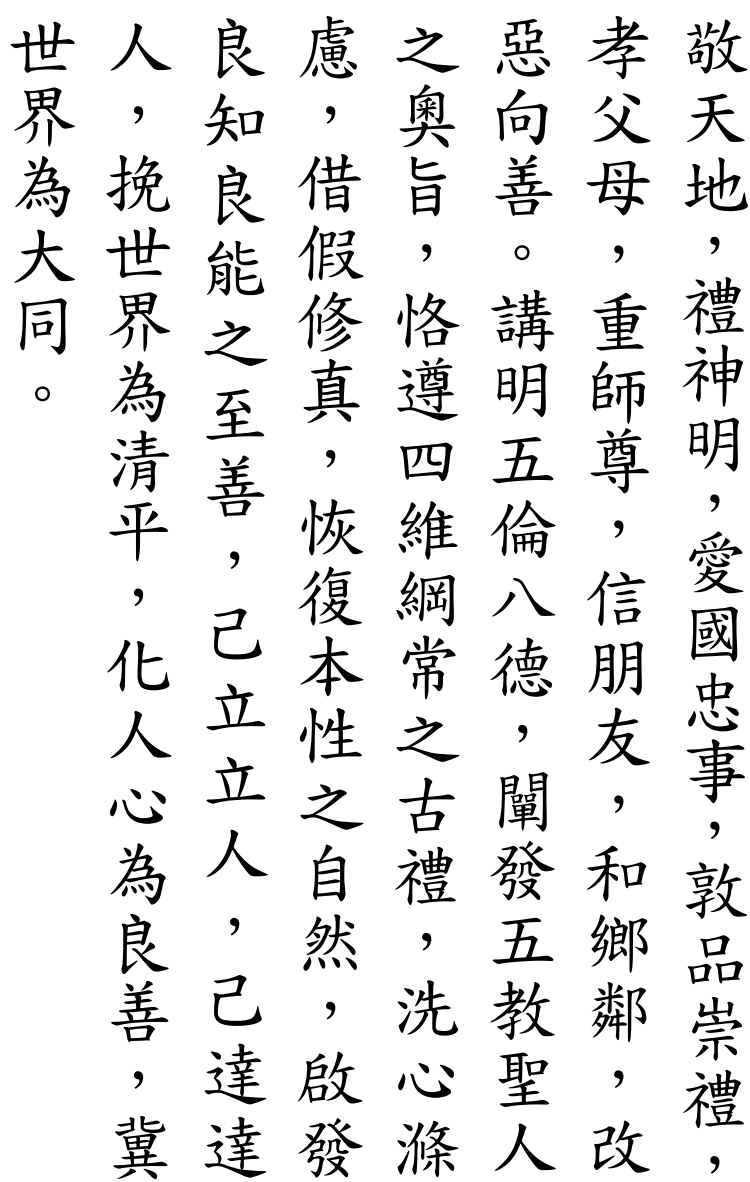 敬天地，禮神明，愛國忠事，敦品崇禮，
孝父母，重師尊，信朋友，和鄉鄰，改
惡向善。講明五倫八德，闡發五教聖人
之奧旨，恪遵四維綱常之古禮，洗心滌
慮，借假修真，恢復本性之自然，啟發
良知良能之至善，己立立人，己達達
人，挽世界為清平，化人心為良善，冀
世界為大同。